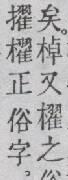 矣。棹又櫂之俗
擢櫂正俗字。